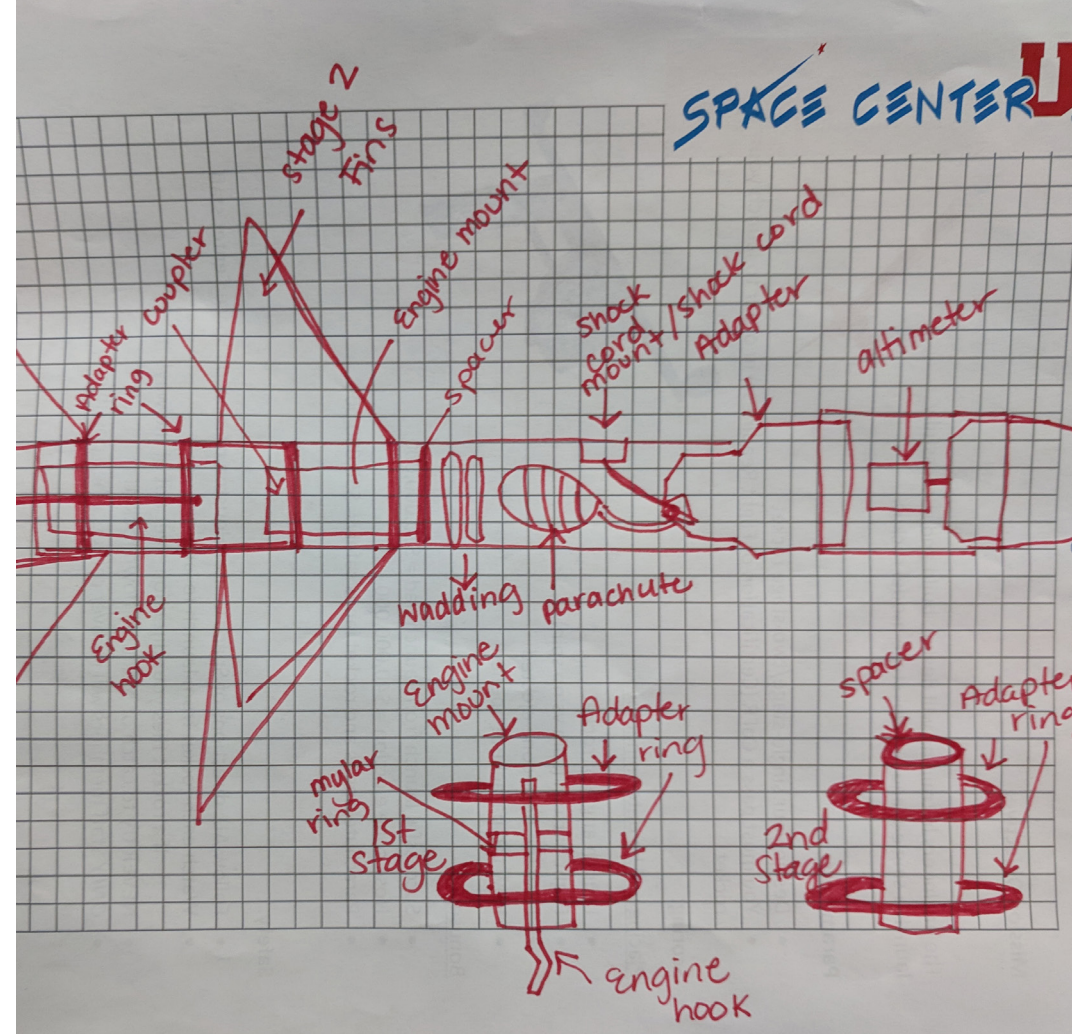 SPACE CENTER U
stage 2
Fins
Engine mount
coupler
Adapter
ring
spacer
shock
cord
mount/shock cord
Adapter
altimeter
Engine
hook
wadding
parachute
Engine
mount
Adapter
ring
mylar
ring
1st
stage
Engine
hook
spacer
Adapter
ring
2nd
Stage